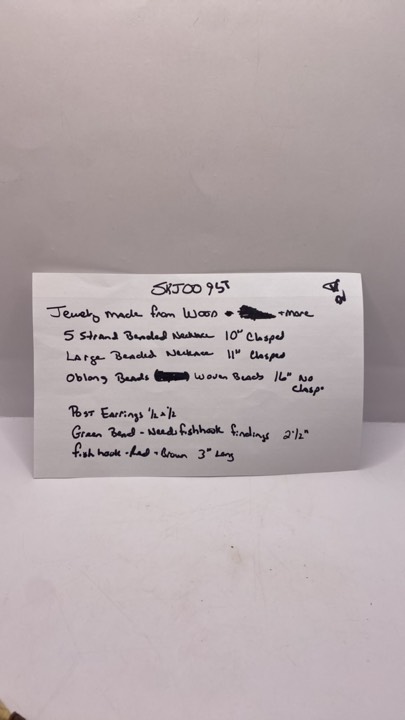 SKJ0095T
Jewelry made from Wood + more
5 Strand Beaded Necklace 10" Clasped
Large Beaded Necklace 11" Clasped
Oblong Beads Woven Beads 16" No Clasp
Post Earrings 1/2 x 1/2
Green Bead - Needs fishhook findings 2 1/2"
fish hook - Red + Brown 3" Long